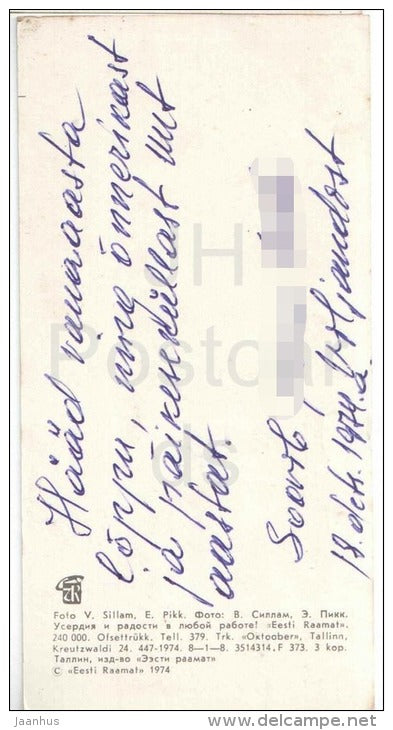 Hääd vanaaasta
lõppu, ning õnnerikast
ja päikeseküllast uut
aastat.
Soovib
Viljandist
18. dets. 1974. a.
Foto V. Sillam, E. Pikk. Фото: В. Силлам, Э. Пикк.
Усердия и радости в любой работе! «Eesti Raamat».
240 000. Ofsettrükk. Tell. 379. Trk. «Oktoober», Tallinn,
Kreutzwaldi 24. 447-1974. 8—1—8. 3514314. F 373. 3 kop.
Таллин, изд-во «Ээсти раамат»
© «Eesti Raamat» 1974
JH
Postcar
ds
jaanhus
©delcampe.net